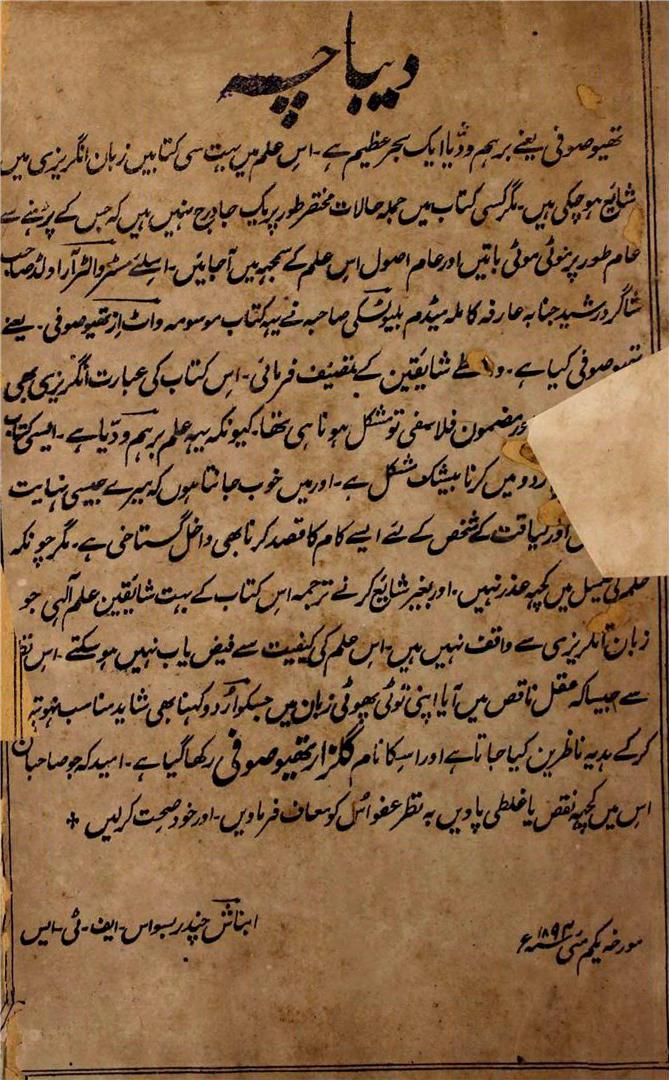 دیباچہ
تھیوصوفی یعنے برہم ودّیا ایک بحر عظیم ہے۔ اس علم میں بہت سی کتابیں زبان انگریزی میں
شایع ہوچکی ہیں۔ مگر کسی کتاب میں جملہ حالات مختصر طور پر یک جا درج نہیں ہیں کہ جس کے پڑہنے سے
عام طور پر موٹی موٹی باتیں اور عام اصول اس علم کے سمجہہ میں آجائیں۔ اسلئے مسٹر والٹر آر اولڈ صاحب
شاگرد رشید جنابہ عارفہ کاملہ میڈم بلیوٹسکی صاحبہ نے یہہ کتاب موسومہ واٹ از تھیوصوفی۔ یعنے
تھیوصوفی کیا ہے۔ واسطے شایقین کے تصنیف فرمائی۔ اس کتاب کی عبارت انگریزی بھی
اور مضمون فلاسفی تو مشکل ہونا ہی تھا۔ کیونکہ یہہ علم برہم ودّیا ہے۔ ایسی کتاب
اردو میں کرنا بیشک مشکل ہے۔ اور میں خوب جانتا ہوں کہ میرے جیسی نہایت
اور لیاقت کے شخص کے لئے ایسے کام کا قصد کرنا بھی داخل گستاخی ہے۔ مگر چونکہ
حکم کی تعمیل میں کچہہ عذر نہیں۔ اور بغیر شایع کرنے ترجمہ اس کتاب کے بہت شایقین علم الٰہی جو
زبان انگریزی سے واقف نہیں ہیں۔ اس علم کی کیفیت سے فیض یاب نہیں ہوسکتے۔ اس نظر
سے جیسا کہ عقل ناقص میں آیا اپنی ٹوٹی پھوٹی زبان میں جسکو اُردو کہنا بھی شاید مناسب نہو ترجمہ
کرکے ہدیہ ناظرین کیا جاتا ہے اور اسکا نام گلزار تھیوصوفی رکھا گیا ہے۔ امید کہ جو صاحبان
اس میں کچہہ نقص یا غلطی پاویں بہ نظر عفو اُس کو معاف فرماویں۔ اور خود صحت کرلیں ٭
مورخہ یکم مئی ۱۸۹۳ء
ابناش چندر بسواس۔ ایف۔ ٹی۔ ایس